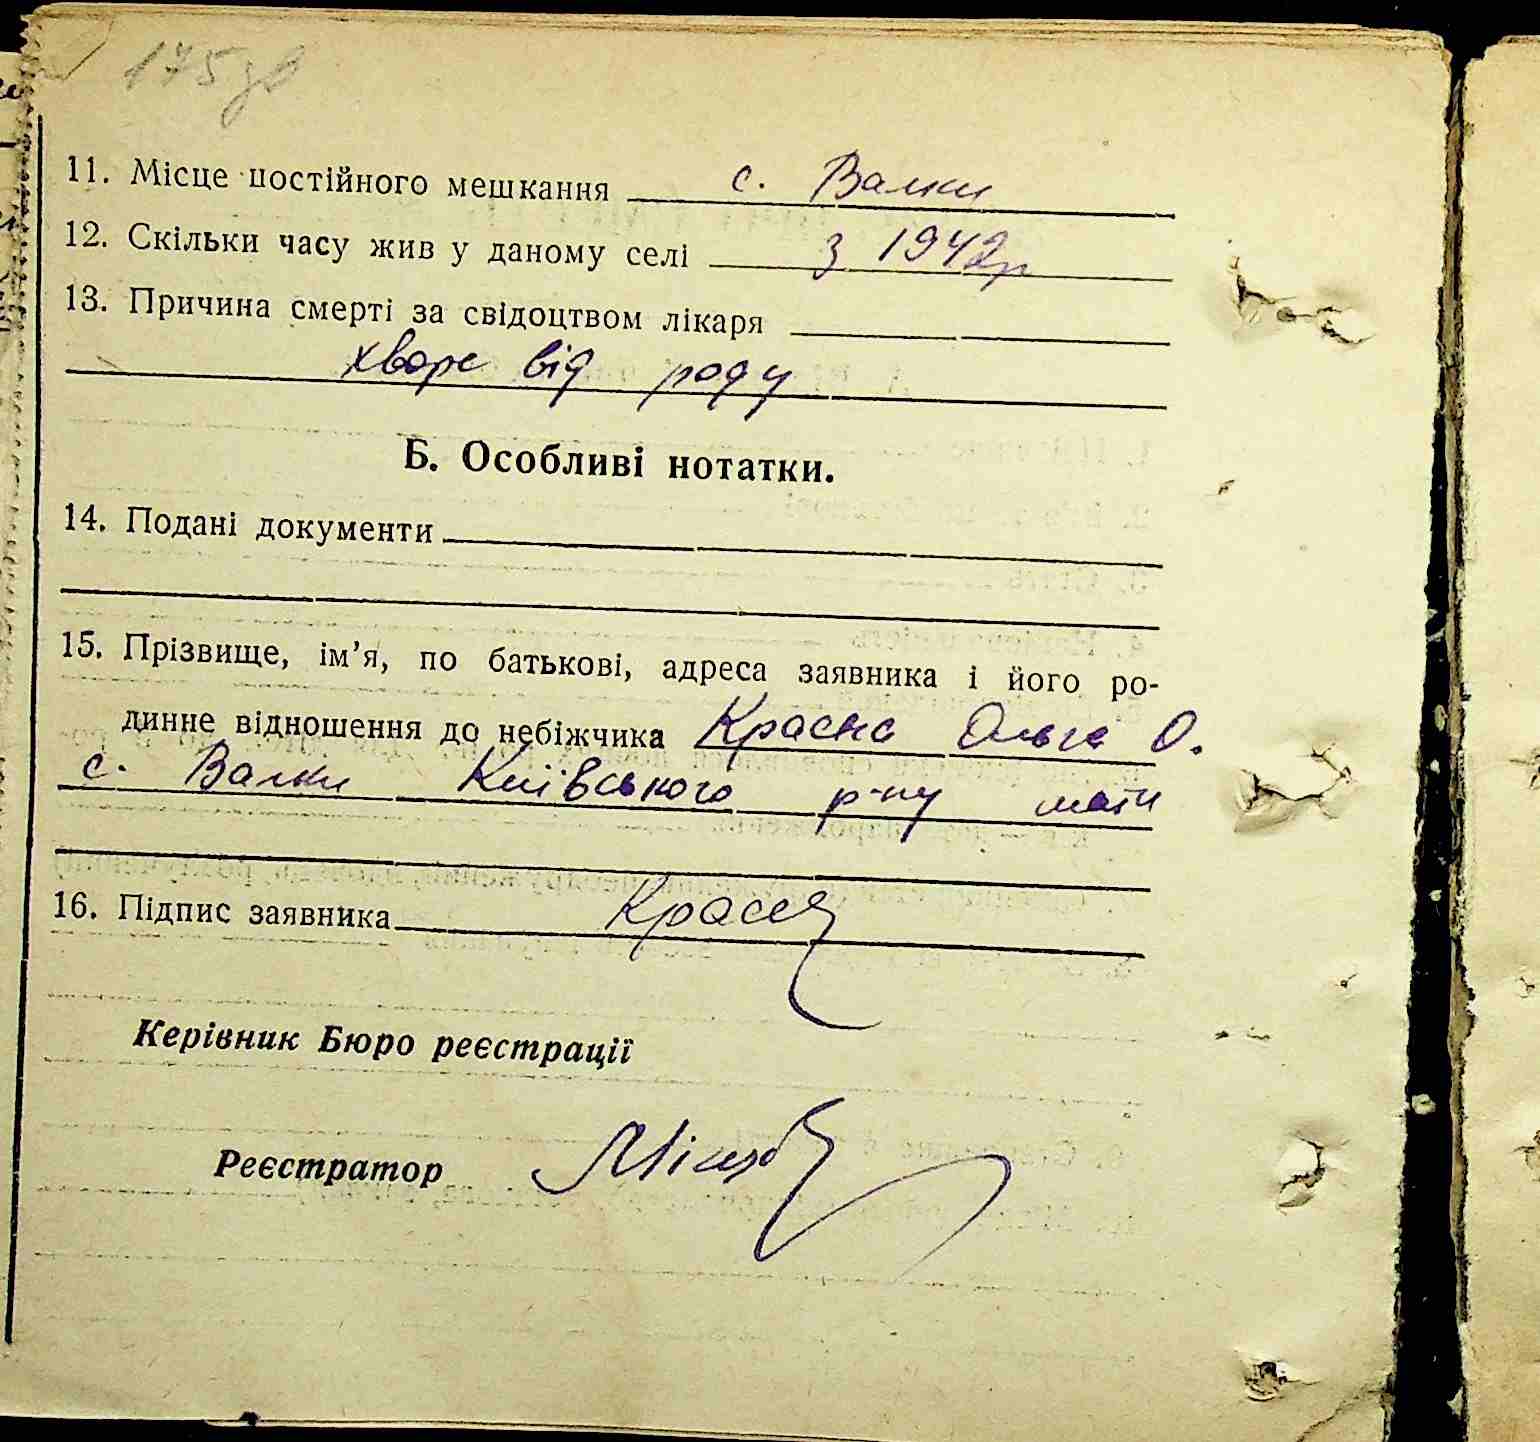 175 зв
11. Місце постійного мешкання с. Валки
12. Скільки часу жив у даному селі з 1942р
13. Причина смерті за свідоцтвом лікаря
хворе від роду
Б. Особливі нотатки.
14. Подані документи
15. Прізвище, ім’я, по батькові, адреса заявника і його ро-
динне відношення до небіжчика Красна Ольга О.
с. Валки Київського р-ну мати
16. Підпис заявника Красн
Керівник Бюро реєстрації
Реєстратор